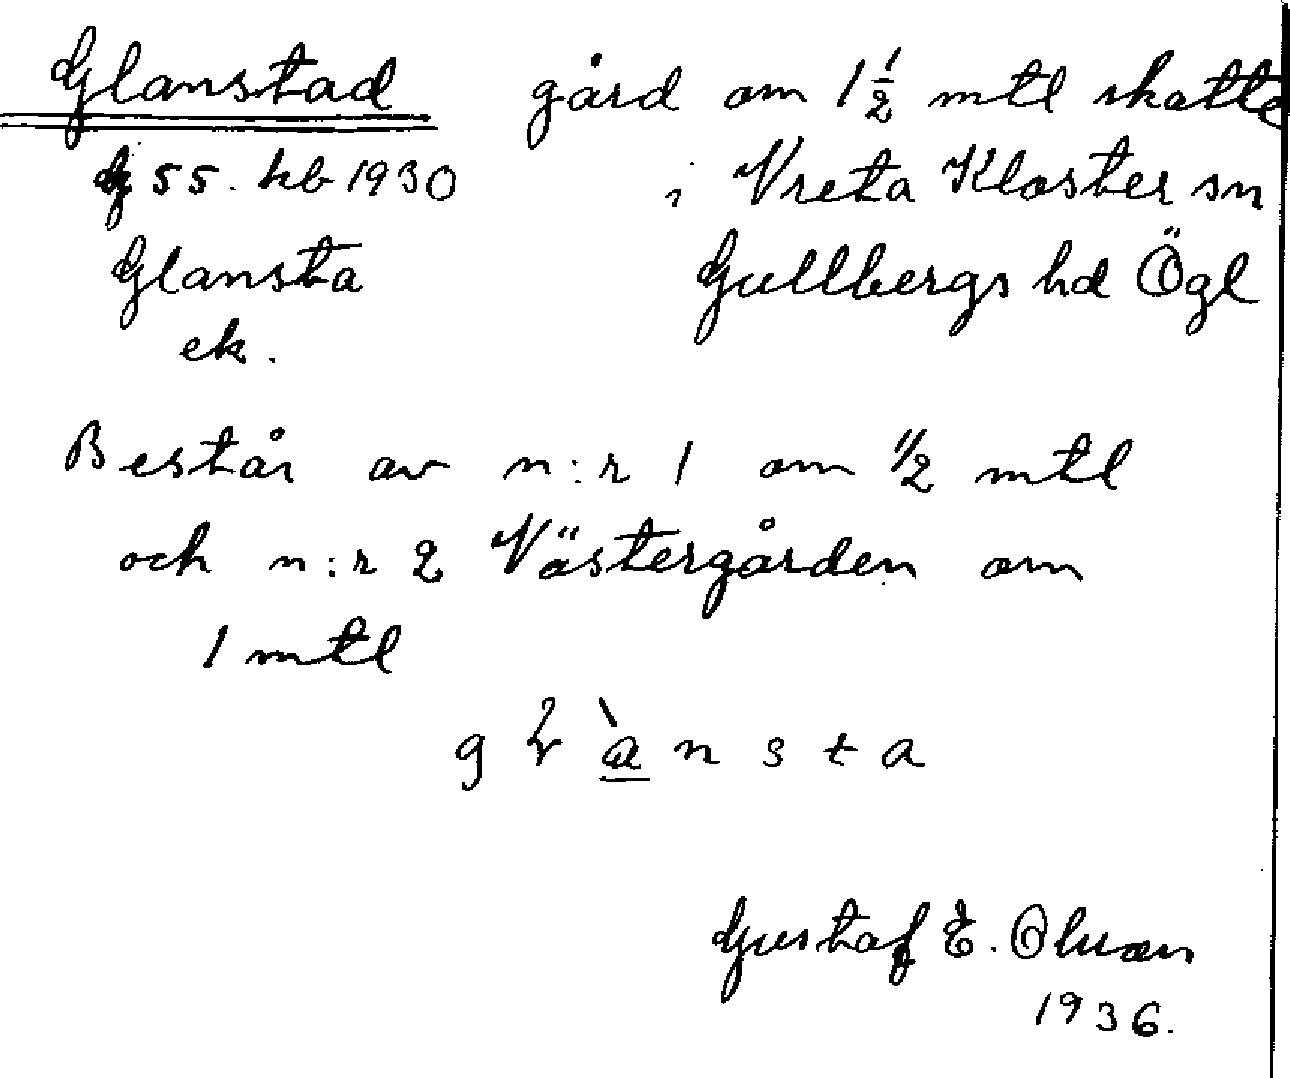 Glanstad gård om 1 1/2 mtl skatte
55. hb 1930 i Vreta Kloster sn
Glansta Gullbergs hd Ögl
ek.
Består av n:r 1 om 1/2 mtl
och n:r 2 Västergården om
1 mtl
a n s t a
Gustaf E. Olson
1936.